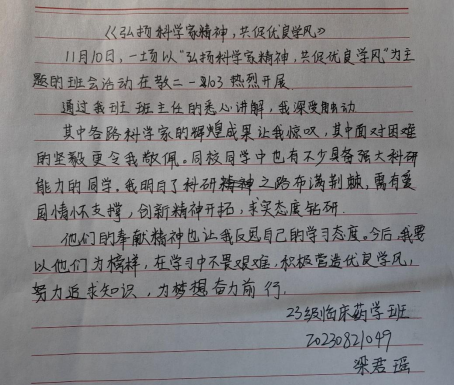 《弘扬科学家精神，共促优良学风》
11月10日，一场以“弘扬科学家精神，共促优良学风”为主
题的班会活动在教二一103热烈开展.
通过我班班主任的悉心讲解，我深受触动
其中各路科学家的辉煌成果让我惊叹，其中面对困难
的坚毅更令我敬佩。同校同学中也有不少具备强大科研
能力的同学。我明白了科研精神之路布满荆棘，需有爱
国情怀支撑，创新精神开拓，求实态度钻研.
他们的奉献精神也让我反思自己的学习态度。今后，我要
以他们为榜样，在学习中不畏艰难，积极营造优良学风，
努力追求知识，为梦想奋力前行.
23级临床药学班
20230821049
梁君瑶